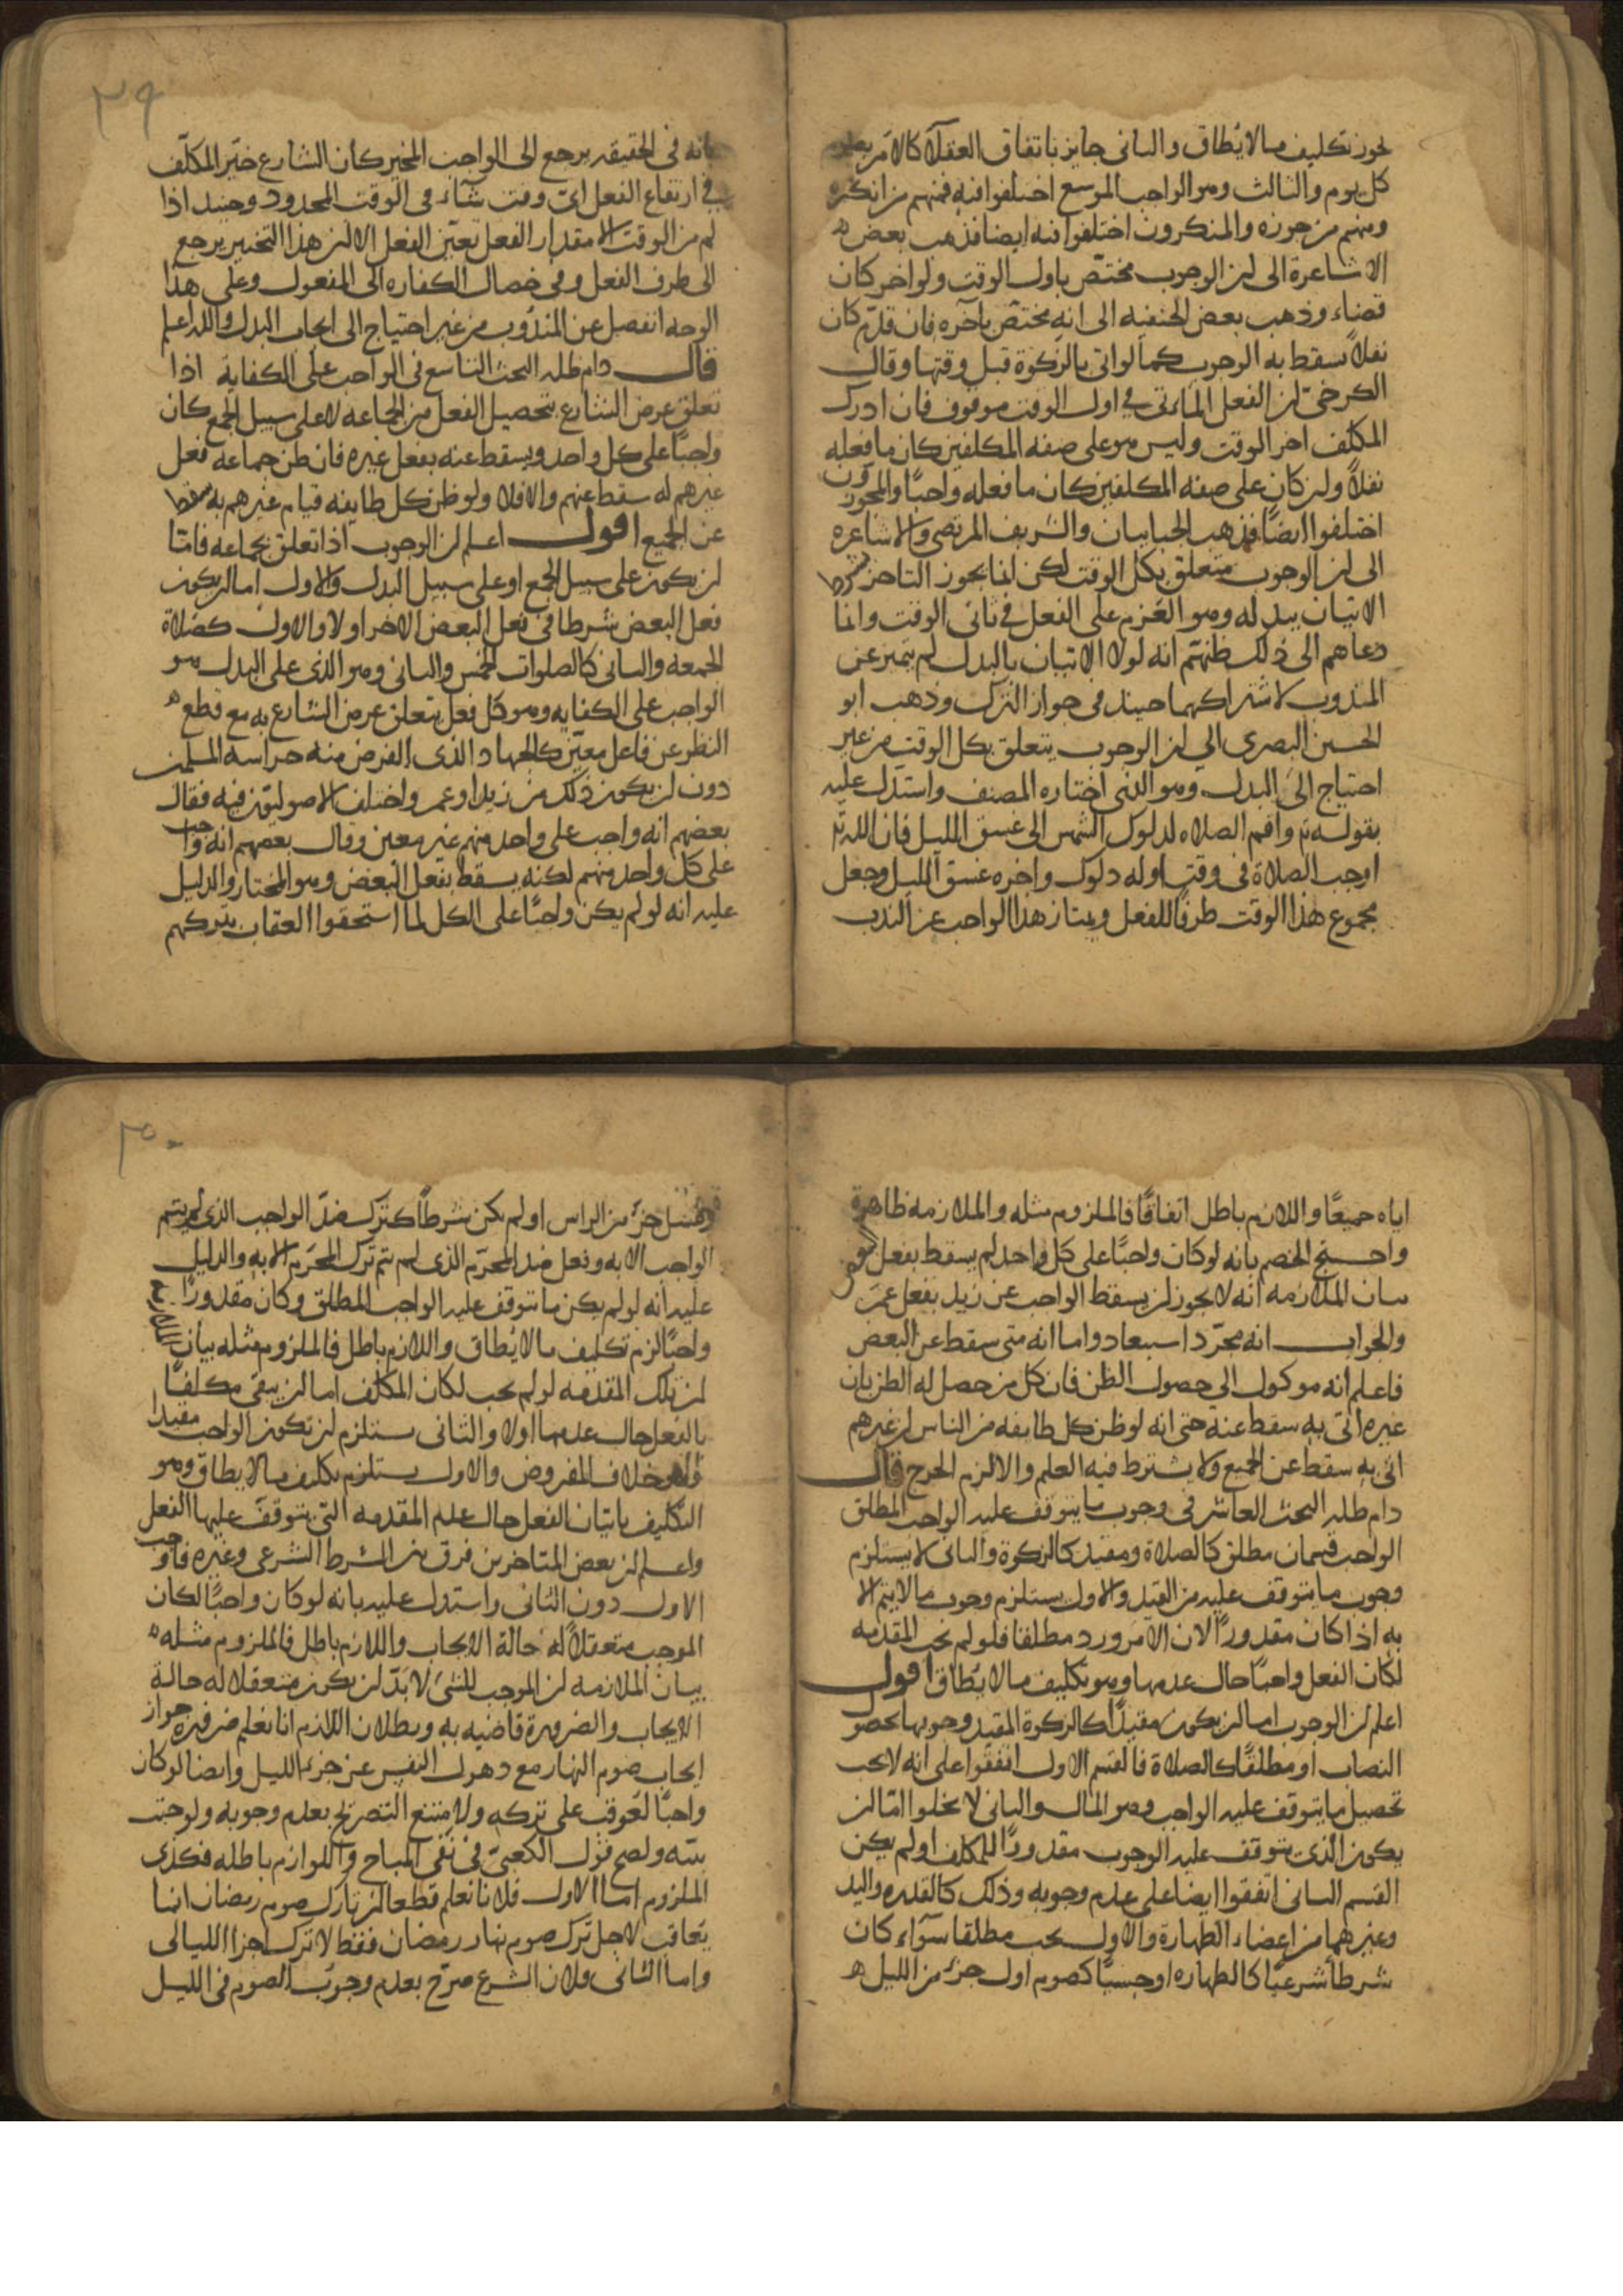 يجوز تكليف ما لا يطاق والثانى جايز باتفاق العقلآ كالامر بصوم
كل يوم والثالث وهو الواجب الموسع اختلفوا فيه فمنهم من انكره
ومنهم من جوزه والمنكرون اختلفوا فيه ايضا فذهب بعض
الاشاعرة الى ان الوجوب مختص باول الوقت ولو اخر كان
قضاء وذهب بعض الحنفيه الى انه مختص بآخره فان قدم كان
نفلا يسقط به الوجوب كما لو اتى بالزكوة قبل وقتها وقال
الكرخى ان الفعل المأتى فى اول الوقت موقوف فان ادرك
المكلف اخر الوقت وليس هو على صفه المكلفين كان ما فعله
نفلا وان كان على صفه المكلفين كان ما فعله واجبا والمجوزون
اختلفوا ايضا فذهب الجبابيان والشريف المرتضى والاشاعره
الى ان الوجوب متعلق بكل الوقت لكن انما يجوز التاخير بشرط
الاتيان ببدله وهو العزم على الفعل فى ثانى الوقت وانما
دعاهم الى ذلك ظنهم انه لولا الاتيان بالبدل لم يتميز عن
المندوب لاشتراكهما حينيذ فى جواز الترك وذهب ابو
الحسين البصرى الى ان الوجوب يتعلق بكل الوقت من غير
احتياج الى البدل وهو الذى اختاره المصنف واستدل عليه
بقوله تع واقم الصلاه لدلوك الشمس الى غسق الليل فان الله تع
اوجب الصلاة فى وقت اوله دلوك واخره غسق الليل وجعل
مجموع هذا الوقت ظرفا للفعل ويمتاز هذا الواجب عن الندب
٢٩
بانه فى الحقيقه يرجع الى الواجب المخير كان الشارع خير المكلف
فى ايقاع الفعل اى وقت شآء فى الوقت المحدود وحينيذ اذا
لم من الوقت الا مقدار الفعل تعين الفعل الا ان هذا التخيير يرجع
الى ظرف الفعل وفى خصال الكفاره الى المفعول وعلى هذا
الوجه انفصل عن المندوب من غير احتياج الى ايجاب البدل والله اعلم
قال دام ظله البحث التاسع فى الواجب على الكفاية اذا
تعلق غرض الشارع بتحصيل الفعل من الجماعه لا على سبيل الجمع كان
واجبا على كل واحد ويسقط عنه بفعل غيره فان ظن جماعه فعل
غيرهم له سقط عنهم والا فلا ولو ظن كل طايفه قيام غيرهم به سقط
عن الجميع اقول اعلم ان الوجوب اذا تعلق بجماعه فاما
ان يكون على سبيل الجمع او على سبيل البدل والاول اما ان يكون
فعل البعض شرطا فى فعل البعض الاخر او لا والاول كصلاة
الجمعه والثانى كالصلوات الخمس والثانى وهو الذى على البدل هو
الواجب على الكفايه وهو كل فعل يتعلق غرض الشارع به مع قطع
النظر عن فاعل معين كالجهاد الذى الغرض منه حراسه المسلمين
دون ان يكون ذلك من زيد او عمرو واختلف الاصوليون فيه فقال
بعضهم انه واجب على واحد منهم غير معين وقال بعضهم انه واجب
على كل واحد منهم لكنه يسقط بفعل البعض وهو المختار والدليل
عليه انه لو لم يكن واجبا على الكل لما استحقوا العقاب بتركهم
اياه جميعا واللازم باطل اتفاقا فالملزوم مثله والملازمه ظاهرة
واحتج الخصم بانه لو كان واجبا على كل واحد لم يسقط بفعل
بيان الملازمه انه لا يجوز ان يسقط الواجب عن زيد بفعل عمرو
والجواب انه مجرد استبعاد واما انه متى سقط عن البعض
فاعلم انه موكول الى حصول الظن فان كل من حصل له الظن بان
غيره اتى به سقط عنه حتى انه لو ظن كل طايفه من الناس ان غيرهم
اتى به سقط عن الجميع ولا يشترط فيه العلم والا لزم الحرج قال
دام ظله البحث العاشر فى وجوب ما يتوقف عليه الواجب المطلق
الواجب قسمان مطلق كالصلاة ومقيد كالزكوة والثانى لا يستلزم
وجوب ما يتوقف عليه من القيد والاول يستلزم وجوب ما لا يتم الا
به اذا كان مقدورا لان الامر ورد مطلقا فلو لم تجب المقدمه
لكان الفعل واجبا حال عدمها وهو تكليف ما لا يطاق اقول
اعلم ان الوجوب اما ان يكون مقيدا كالزكوة المقيد وجوبها بحصول
النصاب او مطلقا كالصلاة فالقسم الاول اتفقوا على انه لا يجب
تحصيل ما يتوقف عليه الواجب وهو المال والثانى لا يخلوا اما ان
يكون الذى يتوقف عليه الوجوب مقدورا للمكلف او لم يكن
القسم الثانى اتفقوا ايضا على عدم وجوبه وذلك كالقدره واليد
وغيرهما من اعضاء الطهارة والاول يجب مطلقا سوآء كان
شرطا شرعيا كالطهاره او حسيا كصوم اول جزء من الليل
٣٠
وغسل جزء من الراس او لم يكن شرطا كترك ضد الواجب الذى لم يتم
الواجب الا به وفعل ضد المحرم الذى لم يتم ترك المحرم الا به والدليل
عليه انه لو لم يكن ما يتوقف عليه الواجب المطلق وكان مقدورا
واجبا لزم تكليف ما لا يطاق واللازم باطل فالملزوم مثله بيان الملازمه
ان تلك المقدمه لو لم تجب لكان المكلف اما ان يبقى مكلفا
بالفعل حال عدمها او لا والثانى يستلزم ان يكون الواجب مقيدا
وهو خلاف المفروض والاول يستلزم تكليف ما لا يطاق وهو
التكليف باتيان الفعل حال عدم المقدمه التى يتوقف عليها الفعل
واعلم ان بعض المتاخرين فرق بين الشرط الشرعى وغيره فاوجب
الاول دون الثانى واستدل عليه بانه لو كان واجبا لكان
الموجب متعقلا له حالة الايجاب واللازم باطل فالملزوم مثله
بيان الملازمه ان الموجب للشئ لا بد ان يكون متعقلا له حالة
الايجاب والضرورة قاضيه به وبطلان اللازم انا نعلم ضرورة جواز
ايجاب صوم النهار مع ذهول النفس عن جزء الليل وايضا لو كان
واجبا لعوقب على تركه ولامتنع التصريح بعدم وجوبه ولوجبت
نيته ولصح قول الكعبى فى نفى المباح واللوازم باطله فكذى
الملزوم اما الاول فلانا نعلم قطعا ان تارك صوم رمضان انما
يعاقب لاجل ترك صوم نهار رمضان فقط لا ترك اجزا الليالى
واما الثانى فلان الشرع صرح بعدم وجوب الصوم فى الليل